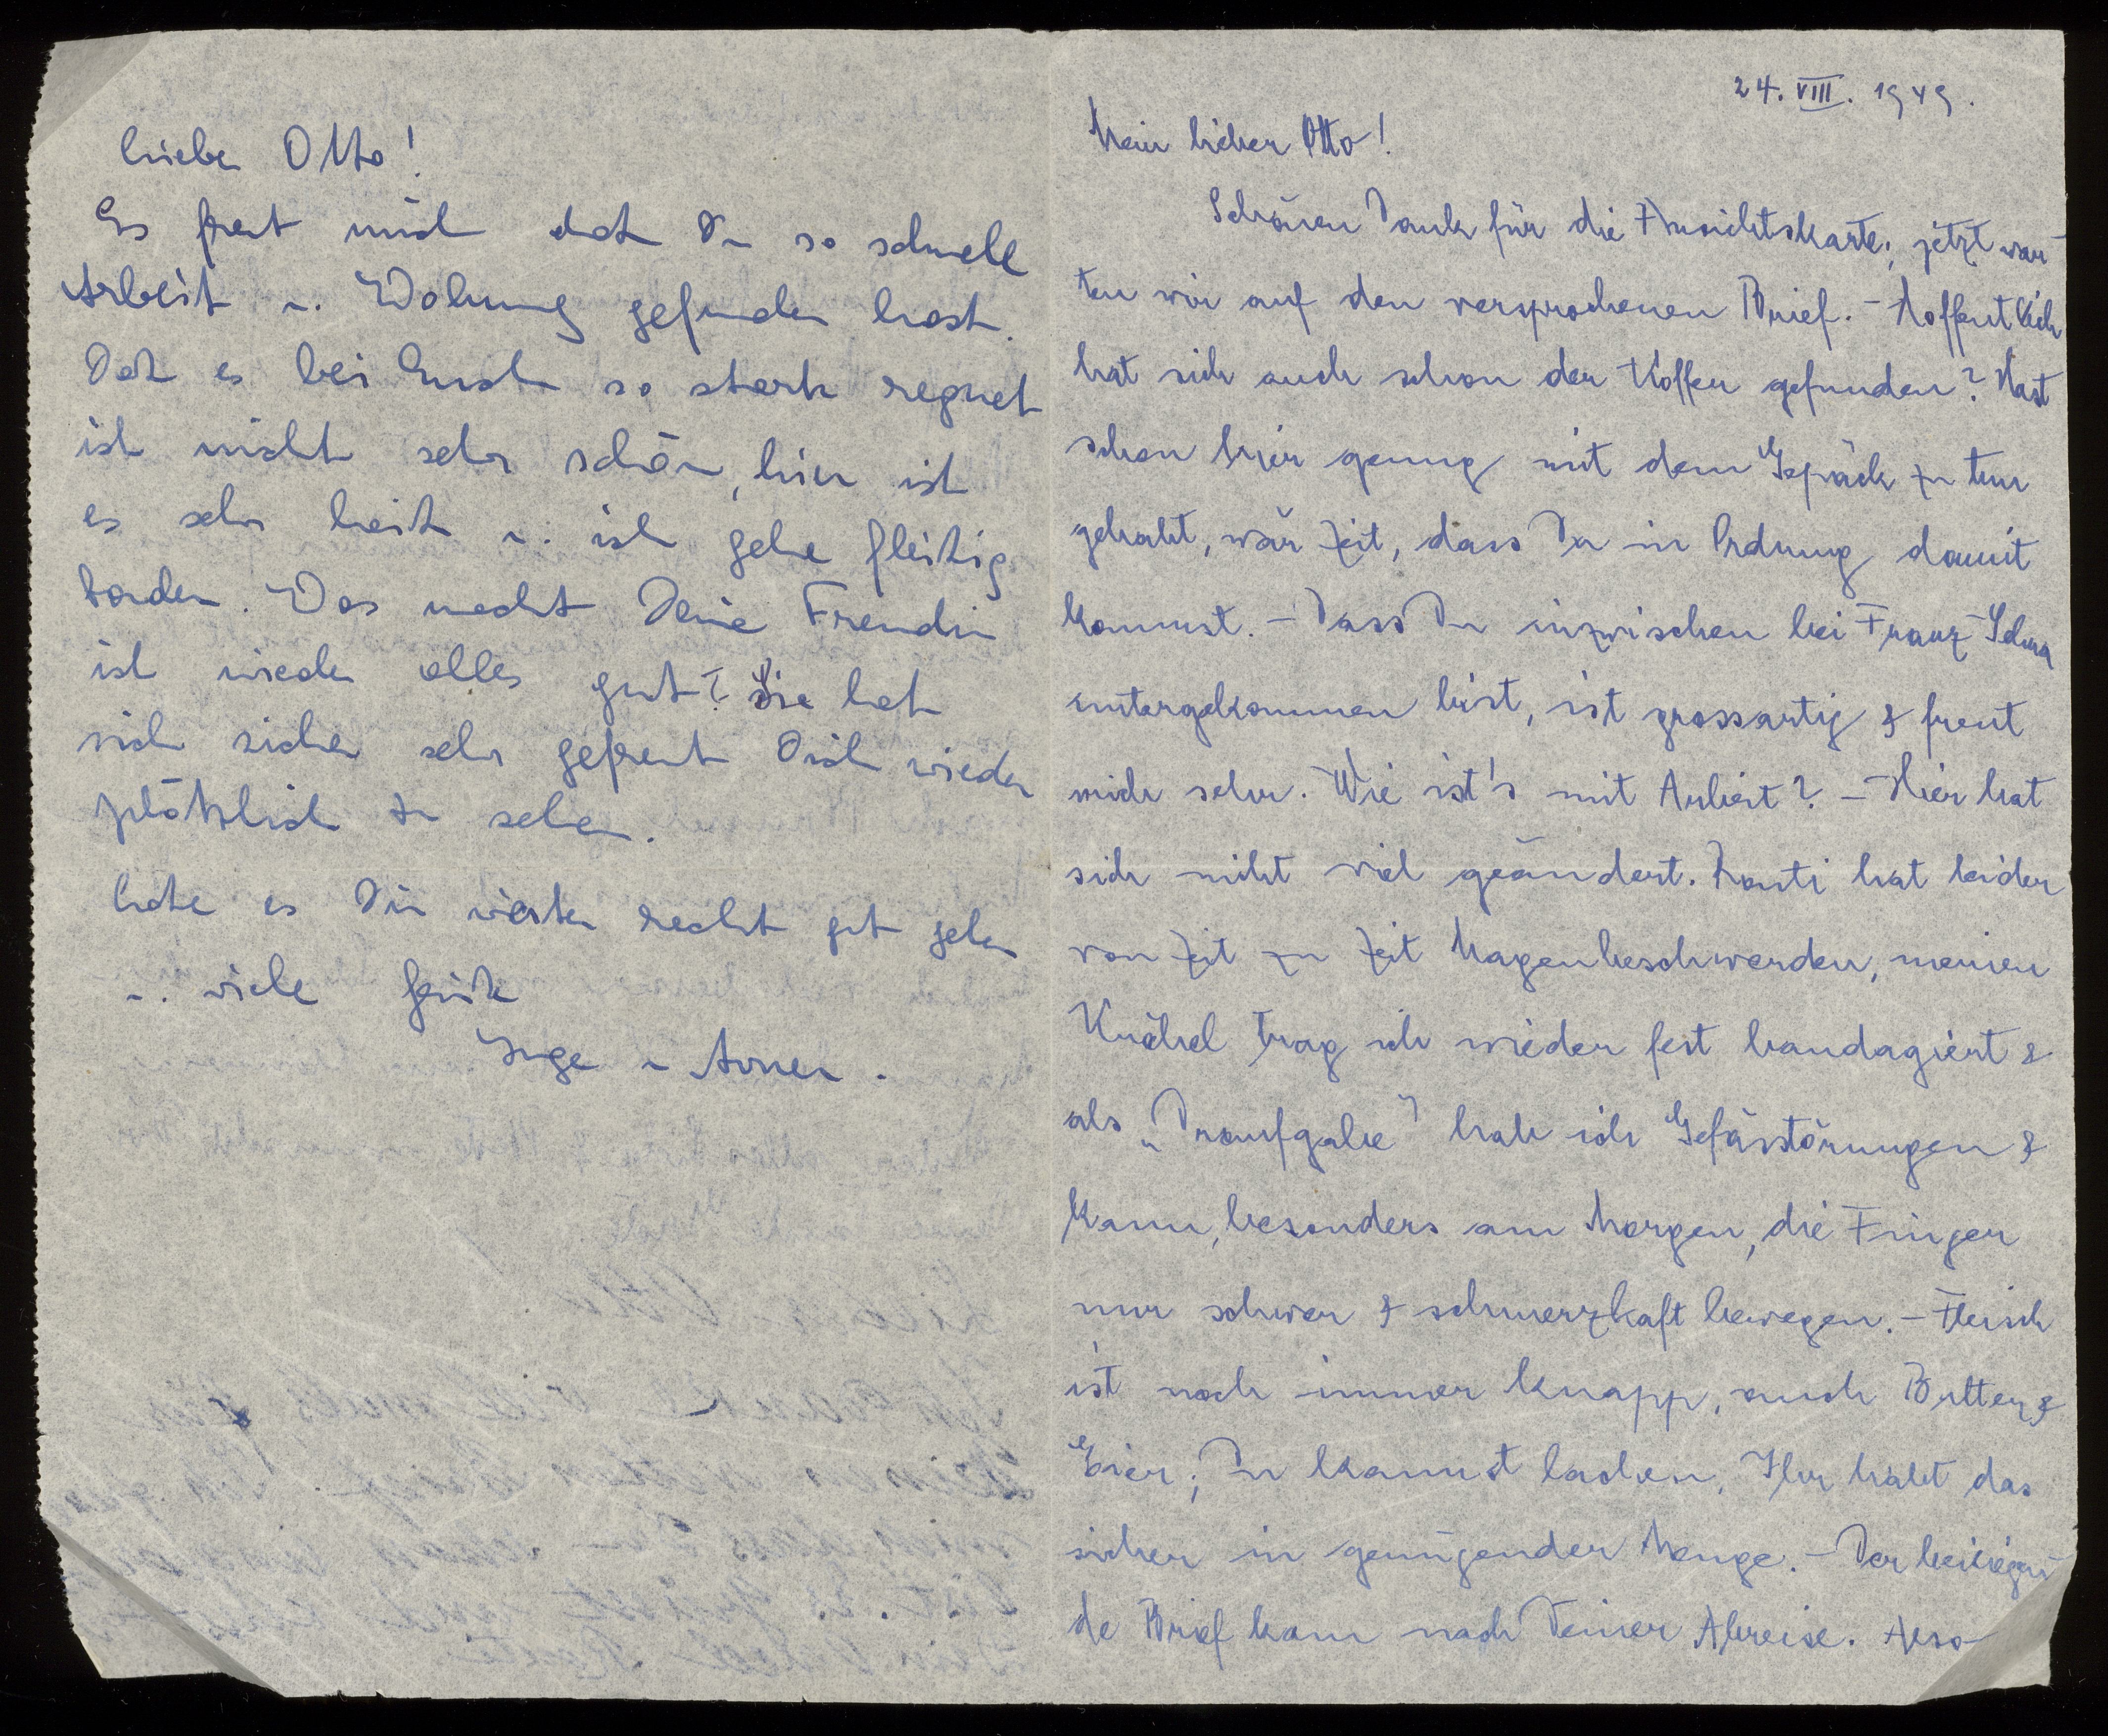 24. VIII. 1949.
Mein lieber Otto!
Schönen Dank für die Ansichtskarte, jetzt war-
ten wir auf den versprochenen Brief. - Hoffentlich
hat sich auch schon der Koffer gefunden? Hast
schon hier genug mit dem Gepäck zu tun
gehabt, wär Zeit, dass Du in Ordnung damit
kommst. - Dass Du inzwischen bei Franz
untergekommen bist, ist grossartig & freut
mich sehr. Wie ist's mit Arbeit? - Hier hat
sich nicht viel geändert. hat leider
von Zeit zu Zeit Magenbeschwerden, meinen
Knöchel trag ich wieder fest bandagiert &
als „Draufgabe" hab ich Gefässtörungen &
kann, besonders am Morgen, die Finger
nur schwer & schmerzhaft bewegen. - Fleisch
ist noch immer knapp, auch Butter &
Eier; Du kannst lachen, Ihr habt das
sicher in genügender Menge. - Der beiliegen-
de Brief kam nach Deiner Abreise. Also
Lieber Otto!
Es freut mich daß Du so schnell
Arbeit u. Wohnung gefunden hast.
Daß es bei Euch so stark regnet
ist nicht sehr schön, hier ist
es sehr heiß u. ich gehe fleißig
baden. Was macht Deine Freundin
ist wieder alles gut? Sie hat
sich sicher sehr gefreut Dich wieder
plötzlich zu sehen.
Laße es Dir weiter recht gut gehen
u. viele Grüße
Inge u Avner.